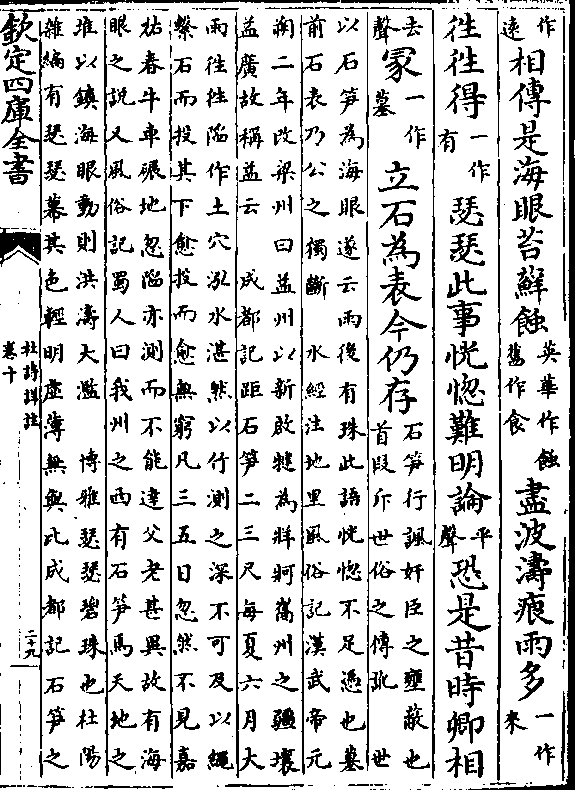 作
遠
相傳是海眼苔蘚蝕
英華作蝕
舊作食
盡波濤痕雨多
一作
來
往往得
一作
有
瑟瑟此事恍惚難明論
平
聲
恐是昔時卿相
去
聲
冡
一作
墓
立石為表今仍存
石筍行諷奸臣之壅蔽也
首段斥世俗之傳訛 世
以石筍為海眼遂云雨後有珠此語恍惚不足憑也墓
前石表乃公之獨斷 水經注地里風俗記漢武帝元
朔二年改梁州曰益州以新啟犍為牂牁嶲州之疆壤
益廣故稱益云 成都記距石筍二三尺每夏六月大
雨往往陥作土穴泓水湛然以竹測之深不可及以繩
繫石而投其下愈投而愈無窮凡三五日忽然不見嘉
祐春牛車碾地忽陥亦測而不能達父老甚異故有海
眼之説又風俗記蜀人曰我州之西有石筍焉天地之
堆以鎮海眼動則洪濤大濫 博雅瑟瑟碧珠也杜陽
雜編有瑟瑟幕其色輕明虛薄無與比成都記石筍之
欽定四庫全書
杜詩詳註
卷十
二十九